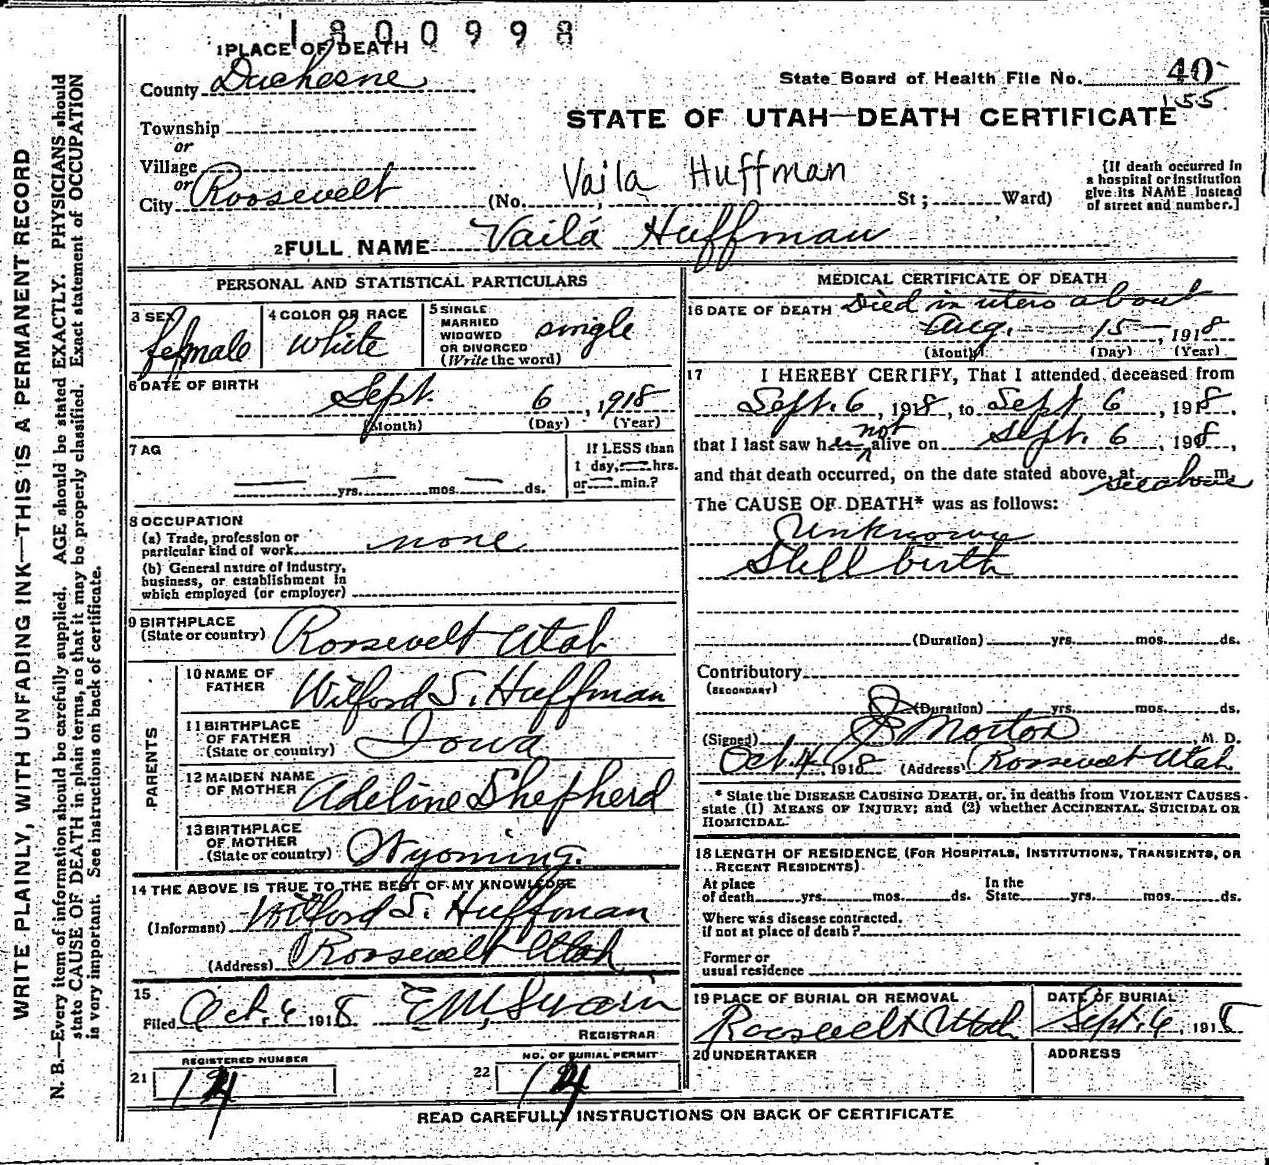 1800998
1 PLACE OF DEATH
County Duchesne
State Board of Health File No. 40
155
STATE OF UTAH—DEATH CERTIFICATE
Township
or
Village
or
City Roosevelt
(No. Vaila Huffman St; Ward)
[If death occurred in
a hospital or institution
give its NAME instead
of street and number.]
2 FULL NAME Vaila Huffman
PERSONAL AND STATISTICAL PARTICULARS
3 SEX female
4 COLOR OR RACE white
5 SINGLE
MARRIED
WIDOWED
OR DIVORCED
(Write the word) single
6 DATE OF BIRTH
Sept. 6, 1918
(Month) (Day) (Year)
7 AG
yrs. mos. ds.
If LESS than
1 day, hrs.
or min.?
8 OCCUPATION
(a) Trade, profession or
particular kind of work none
(b) General nature of industry,
business, or establishment in
which employed (or employer)
9 BIRTHPLACE
(State or country) Roosevelt Utah
PARENTS
10 NAME OF
FATHER Wilford S. Huffman
11 BIRTHPLACE
OF FATHER
(State or country) Iowa
12 MAIDEN NAME
OF MOTHER Adeline Shepherd
13 BIRTHPLACE
OF MOTHER
(State or country) Wyoming.
14 THE ABOVE IS TRUE TO THE BEST OF MY KNOWLEDGE
(Informant) Wilford S. Huffman
(Address) Roosevelt Utah
15
Filed Oct. 6 1918 E M Swain
REGISTRAR
REGISTERED NUMBER
21 14
NO. OF BURIAL PERMIT
22 14
MEDICAL CERTIFICATE OF DEATH
16 DATE OF DEATH Died in utero about
Aug. 15, 1918
(Month) (Day) (Year)
17 I HEREBY CERTIFY, That I attended deceased from
Sept. 6, 1918, to Sept. 6, 1918.
that I last saw her not alive on Sept. 6, 1918,
and that death occurred, on the date stated above, at see above m.
The CAUSE OF DEATH* was as follows:
Unknown
Stillbirth
(Duration) yrs. mos. ds.
Contributory
(SECONDARY)
(Duration) yrs. mos. ds.
(Signed) J E Morton M. D.
Oct. 4, 1918 (Address) Roosevelt Utah
* State the DISEASE CAUSING DEATH, or, in deaths from VIOLENT CAUSES
state (1) MEANS OF INJURY; and (2) whether ACCIDENTAL, SUICIDAL OR
HOMICIDAL.
18 LENGTH OF RESIDENCE (FOR HOSPITALS, INSTITUTIONS, TRANSIENTS, OR
RECENT RESIDENTS).
At place
of death yrs. mos. ds.
In the
State yrs. mos. ds.
Where was disease contracted,
if not at place of death?
Former or
usual residence
19 PLACE OF BURIAL OR REMOVAL
Roosevelt Utah
DATE OF BURIAL
Sept. 6, 1918
20 UNDERTAKER
ADDRESS
READ CAREFULLY INSTRUCTIONS ON BACK OF CERTIFICATE
WRITE PLAINLY, WITH UNFADING INK—THIS IS A PERMANENT RECORD
N. B.—Every item of information should be carefully supplied. AGE should be stated EXACTLY. PHYSICIANS should
state CAUSE OF DEATH in plain terms, so that it may be properly classified. Exact statement of OCCUPATION
is very important. See instructions on back of certificate.